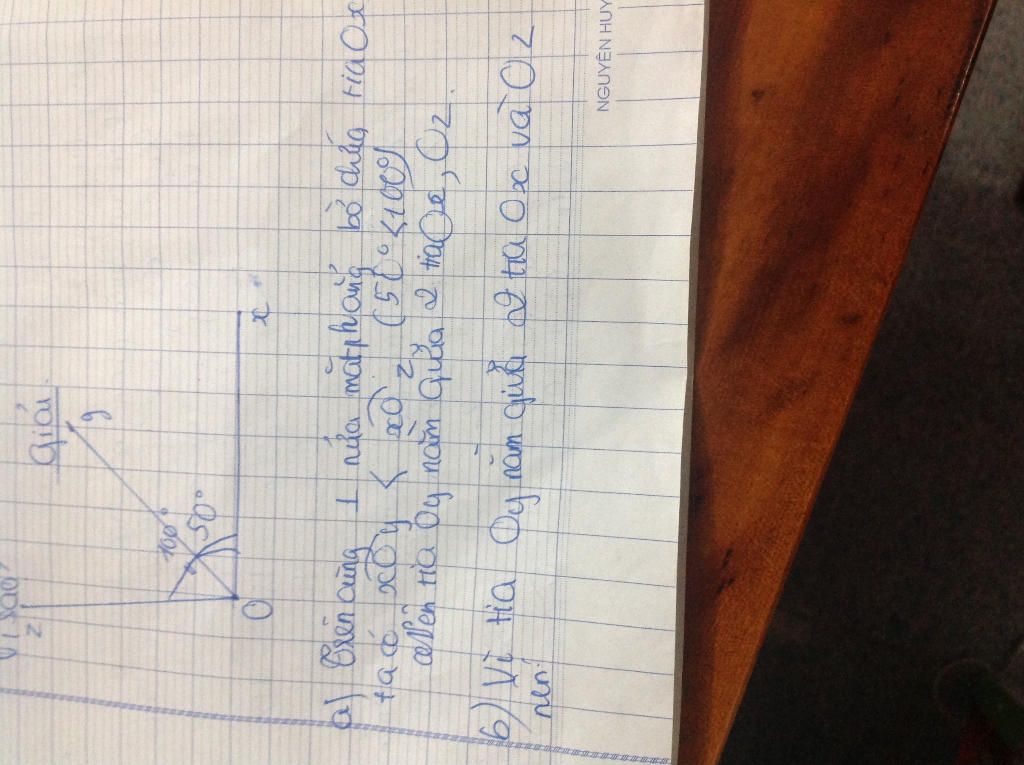 Vì sao?
Giải
z
y
100°
50°
O
x
a) Trên cùng 1 nửa mặt phẳng bờ chứa tia Ox
ta có xOy < xOz (50° < 100°)
Nên tia Oy nằm giữa 2 tia Ox, Oz.
b) Vì tia Oy nằm giữa 2 tia Ox và Oz
nên:
NGUYÊN HUY